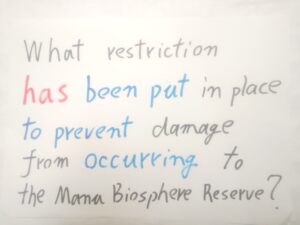 What restriction
has been put in place
to prevent damage
from occurring to
the Mana Biosphere Reserve?